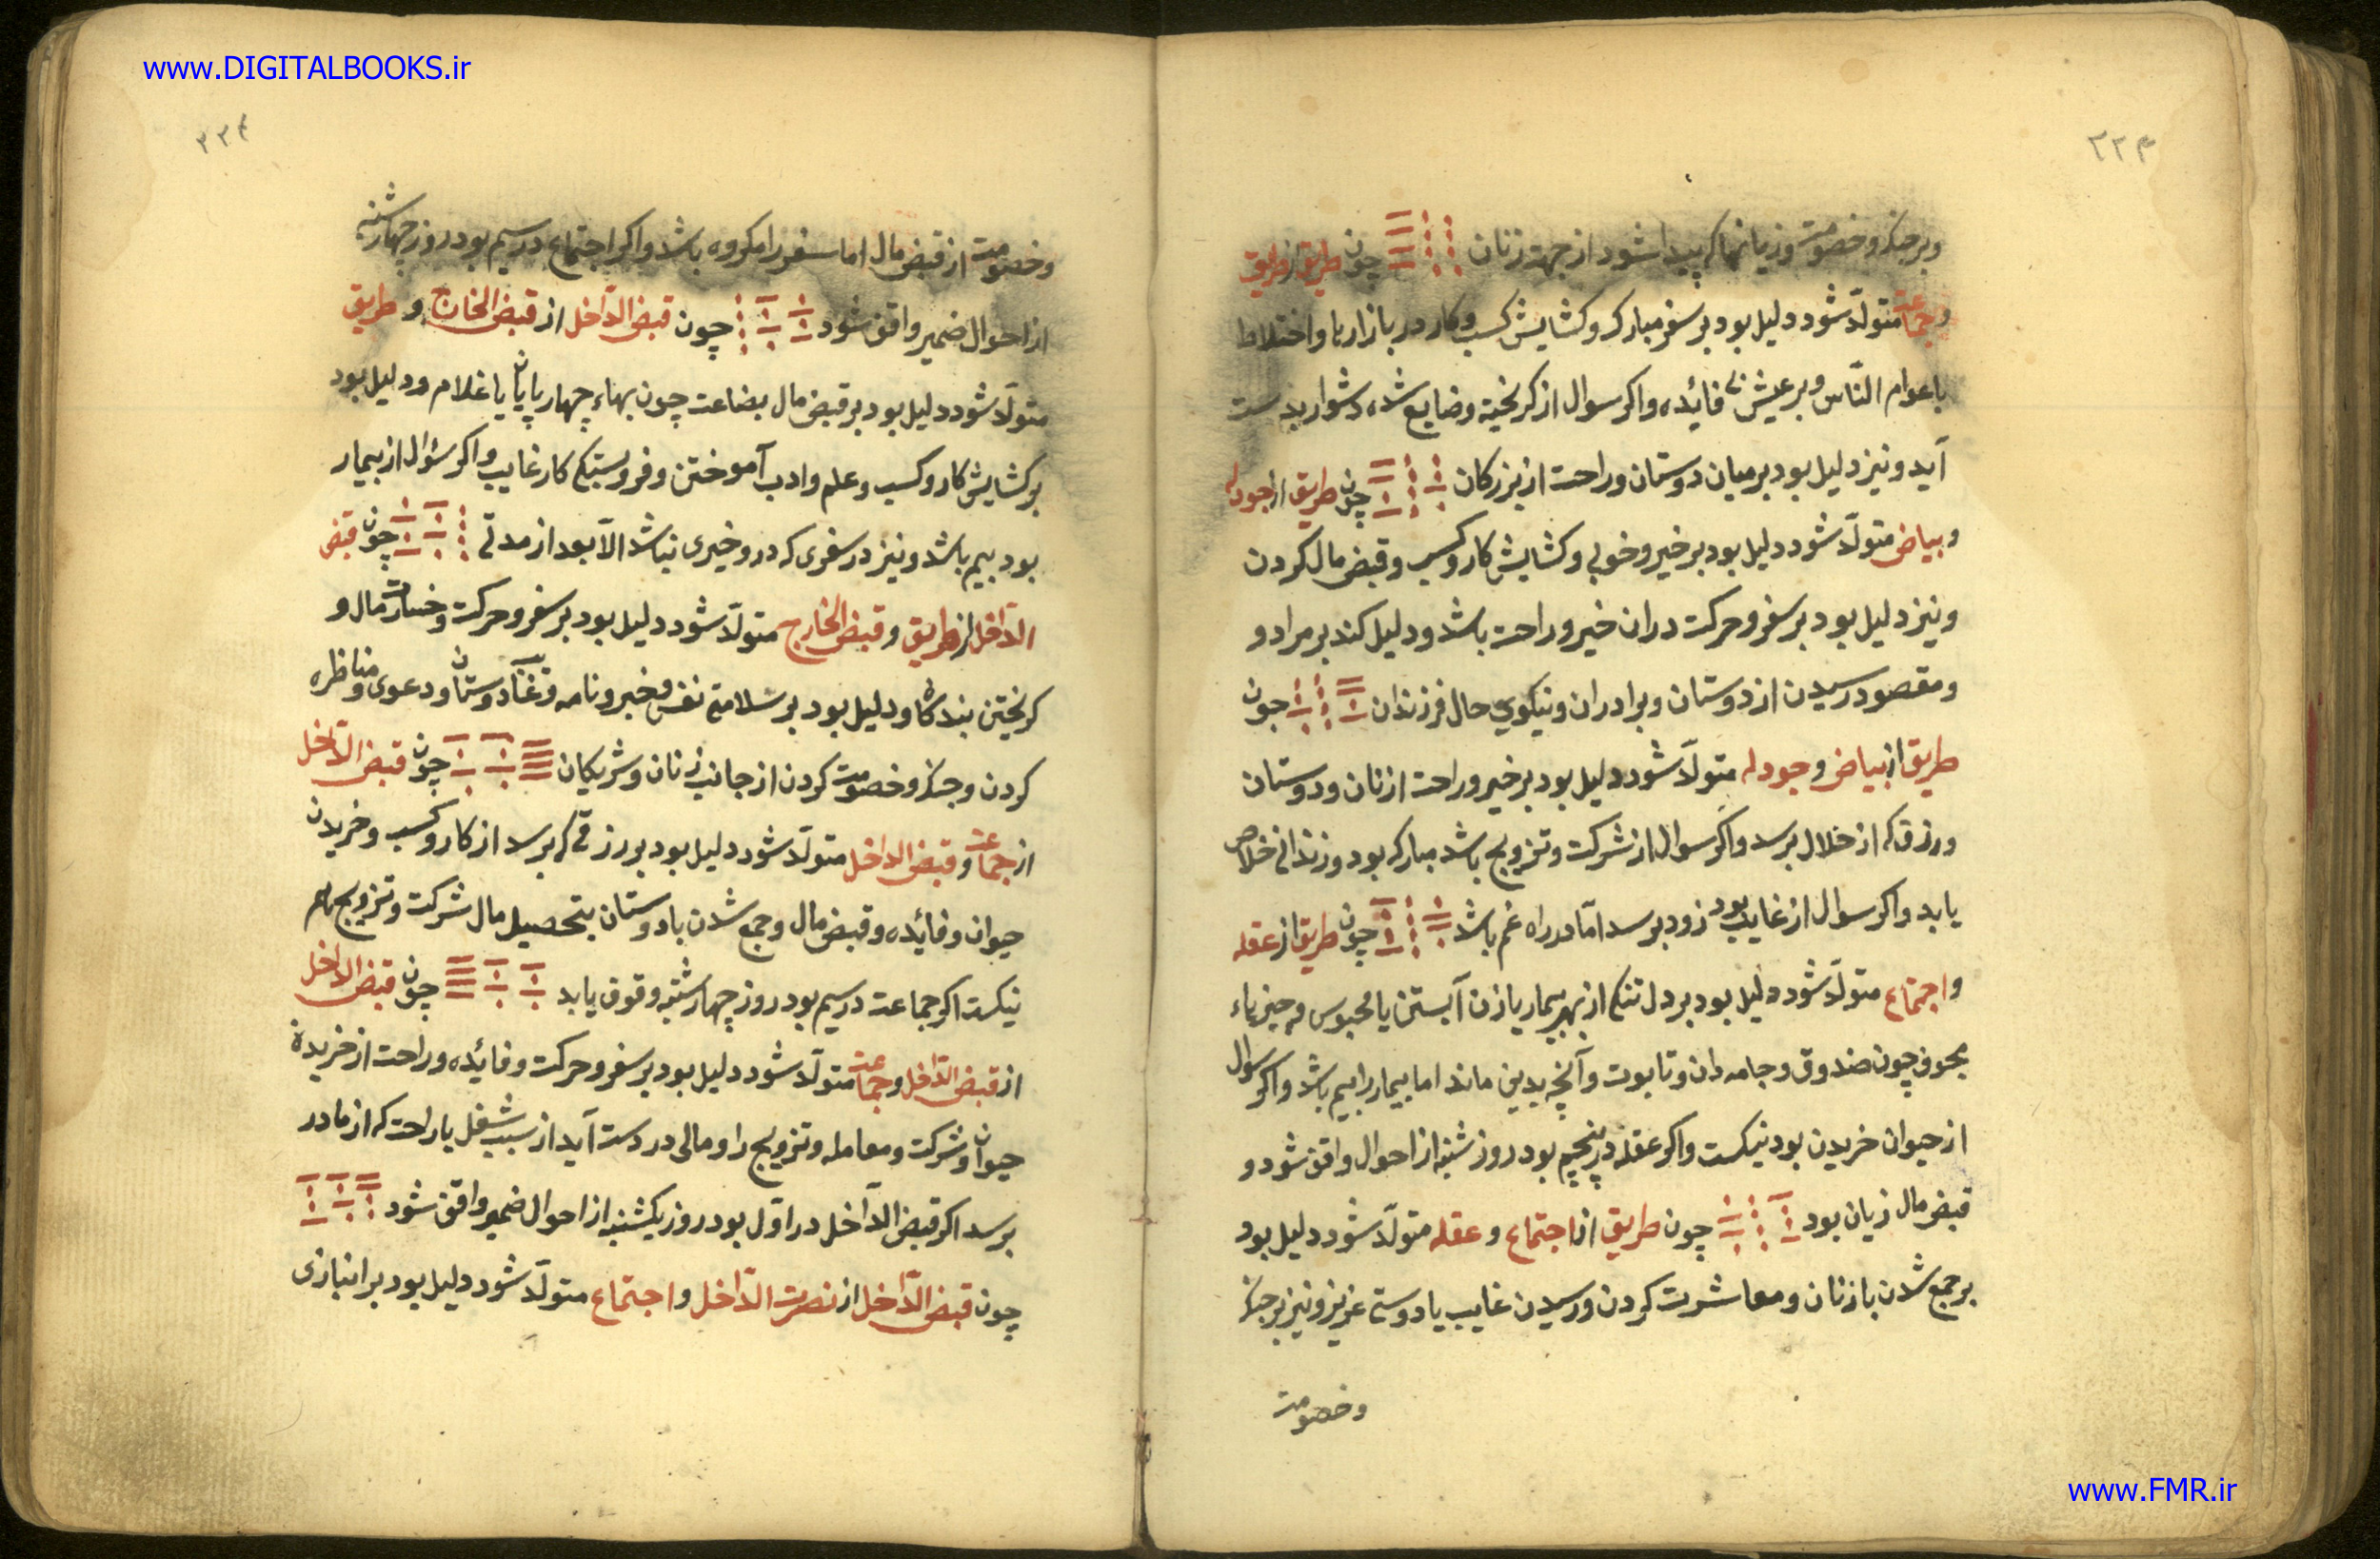 www.DIGITALBOOKS.ir
٢٢٤
وبرجنک وخصومت وزیانها که پیدا شود از جهت زنان چون طریق از طریق
وجماعت متولّد شود دلیل بود بر سفر مبارک وکشایش کسب وکار در بازارها واختلاط
با عوام النّاس وبر عیش بی فائیده واکر سوال از کریخته وضایع شده دشوار بدست
آید ونیز دلیل بود بر میان دوستان وراحت از بزرکان چون طریق از جودله
وبیاض متولّد شود دلیل بود بر خیر وخوبی وکشایش کار وکسب وقبض مال کردن
ونیز دلیل بود بر سفر وحرکت دران خیر وراحت باشد ودلیل کند بر مراد و
ومقصود رسیدن از دوستان وبرادران ونیکویی حال فرزندان چون
طریق از بیاض وجودله متولّد شود دلیل بود بر خیر وراحت از زنان ودوستان
ورزق که از خلال برسد واکر سوال از شرکت وتزویج باشد مبارک بود وزندانی خلاص
یابد واکر سوال از غایب بود زود برسد امّا در راه غم باشد چون طریق از عقله
واجتماع متولّد شود دلیل بود بر دل تنکی از بهر بیمار یا زن آبستن یا محبوس وچیزهاء
مجوف چون صندوق وجامه دان وتابوت وآنچه بدین ماند اما بیمار را بیم باشد واکر سوال
از حیوان خریدن بود نیکست واکر عقله در پنجم بود روز شنبه از احوال واقف شود و
قبض مال زیان بود چون طریق از اجتماع وعقله متولّد شود دلیل بود
بر جمع شدن با زنان ومعاشرت کردن ورسیدن غایب یا دوستی عزیز ونیز بر جنک
وخصومت
٢٢٤
وخصومت از قبض مال اما سفر را مکروه باشد واکر اجتماع در سیم بود روز چهارشنبه
از احوال ضمیر واقف شود چون قبض الدّاخل از قبض الخارج وطریق
متولّد شود دلیل بود بر قبض مال بضاعت چون بهاء چهارپایان یا غلام ودلیل بود
بر کشایش کار وکسب وعلم وادب آموختن وفروبستکی کار غایب واکر سؤال از بیمار
بود بیم باشد ونیز در سفری که درو خیری نباشد الّا بعد از مدتی چون قبض
الدّاخل از طریق وقبض الخارج متولّد شود دلیل بود بر سفر وحرکت وخسارت مال و
کریختن بندکان ودلیل بود بر سلامتی نفس وخبر ونامه دوستان ودعوی ومناظره
کردن وجنک وخصومت کردن از جانب زنان وشریکان چون قبض الدّاخل
از جماعت وقبض الداخل متولّد شود دلیل بود بر رزقی که برسد از کار وکسب وخریدن
حیوان وفائیده وقبض مال وجمع شدن با دوستان بتحصیل مال شرکت وتزویج هم
نیکست اکر جماعت در سیم بود روز چهارشنبه وقوف یابد چون قبض الداخل
از قبض الدّاخل وجماعت متولّد شود دلیل بود بر سفر وحرکت وفائیده وراحت از خریدن
حیوان وشرکت ومعامله وتزویج را ومالی در دست آید از سبب شغل یا راحت که از مادر
برسد اکر قبض الدّاخل در اوّل بود روز یکشنبه از احوال ضمیر واقف شود
چون قبض الدّاخل از نصرت الدّاخل واجتماع متولّد شود دلیل بود بر انبازی
www.FMR.ir